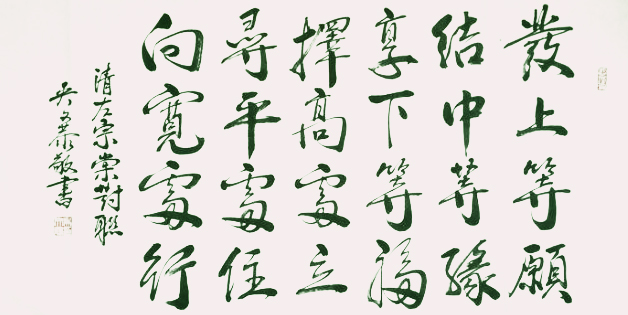 發上等願
結中等緣
享下等福
擇高處立
尋平處住
向寬處行
清左宗棠對聯
敬書